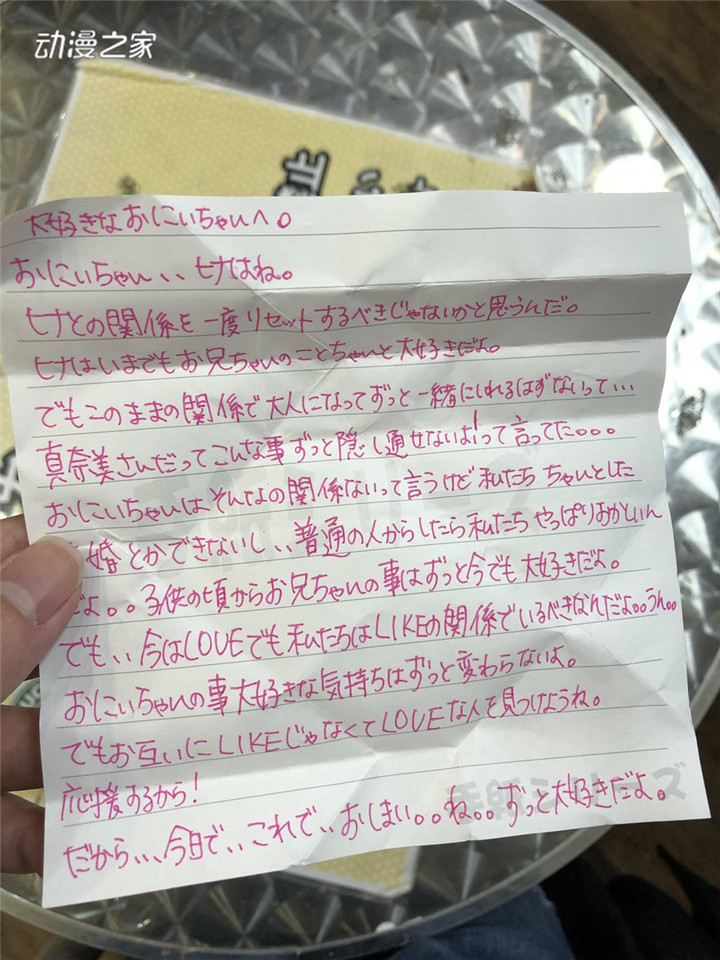 动漫之家
大好きなおにいちゃんへ。
おにいちゃん、、ヒナはね。
ヒナとの関係を一度リセットするべきじゃないかと思うんだ。
ヒナはいまでもお兄ちゃんのことちゃんと大好きだよ。
でもこのままの関係で大人になってずっと一緒にいれるはずないって…
真奈美さんだってこんな事ずっと隠し通せないよ!って言ってた。。。
おにいちゃんはそんなの関係ないって言うけど私たち ちゃんとした
婚とかできないし、、普通の人からしたら私たち やっぱりおかしいん
だよ。。子供の頃からお兄ちゃんの事はずっと今でも大好きだよ。
でも、、今はLOVEでも私たちはLIKEの関係でいるべきなんだよ。。うん。。
おにいちゃんの事大好きな気持ちはずっと変わらないよ。
でもお互いにLIKEじゃなくてLOVEな人を見つけようね。
応援するから!
だから、、、今日で、、これで、、おしまい。。ね。。ずっと大好きだよ。
手紙シリーズ